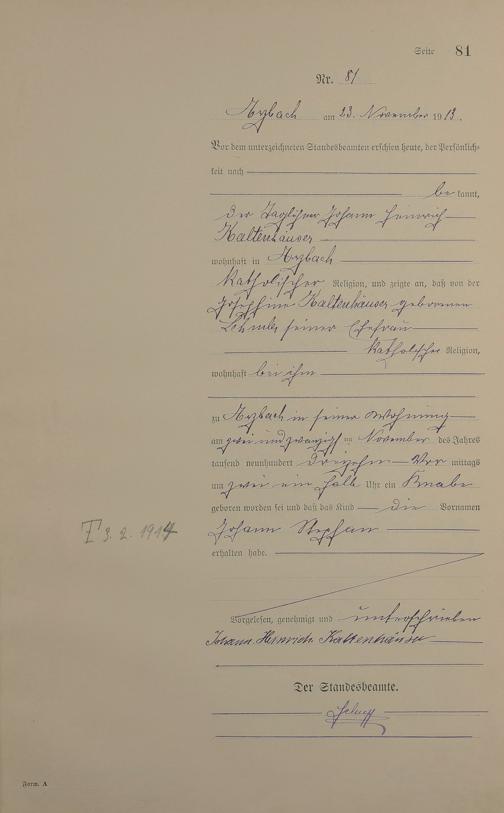 Seite 81
Nr. 81
Arzbach am 23. November 1913.
Vor dem unterzeichneten Standesbeamten erschien heute, der Persönlich-
keit nach
be kannt,
der Taglöhner Johann Heinrich
Kaltenhäuser
wohnhaft in Arzbach
katholischer Religion, und zeigte an, daß von der
Josephine Kaltenhäuser geborenen
seiner Ehefrau
katholischer Religion,
wohnhaft bei ihm
zu Arzbach in seiner Wohnung
am zwei und zwanzigsten November des Jahres
tausend neunhundert dreizehn Vor mittags
um zwei ein halb Uhr ein Knabe
geboren worden sei und daß das Kind die Vornamen
Johann Stephan
erhalten habe.
3. 2. 1914
Vorgelesen, genehmigt und unterschrieben
Johann Heinrich Kaltenhäuser
Der Standesbeamte.
Form. A